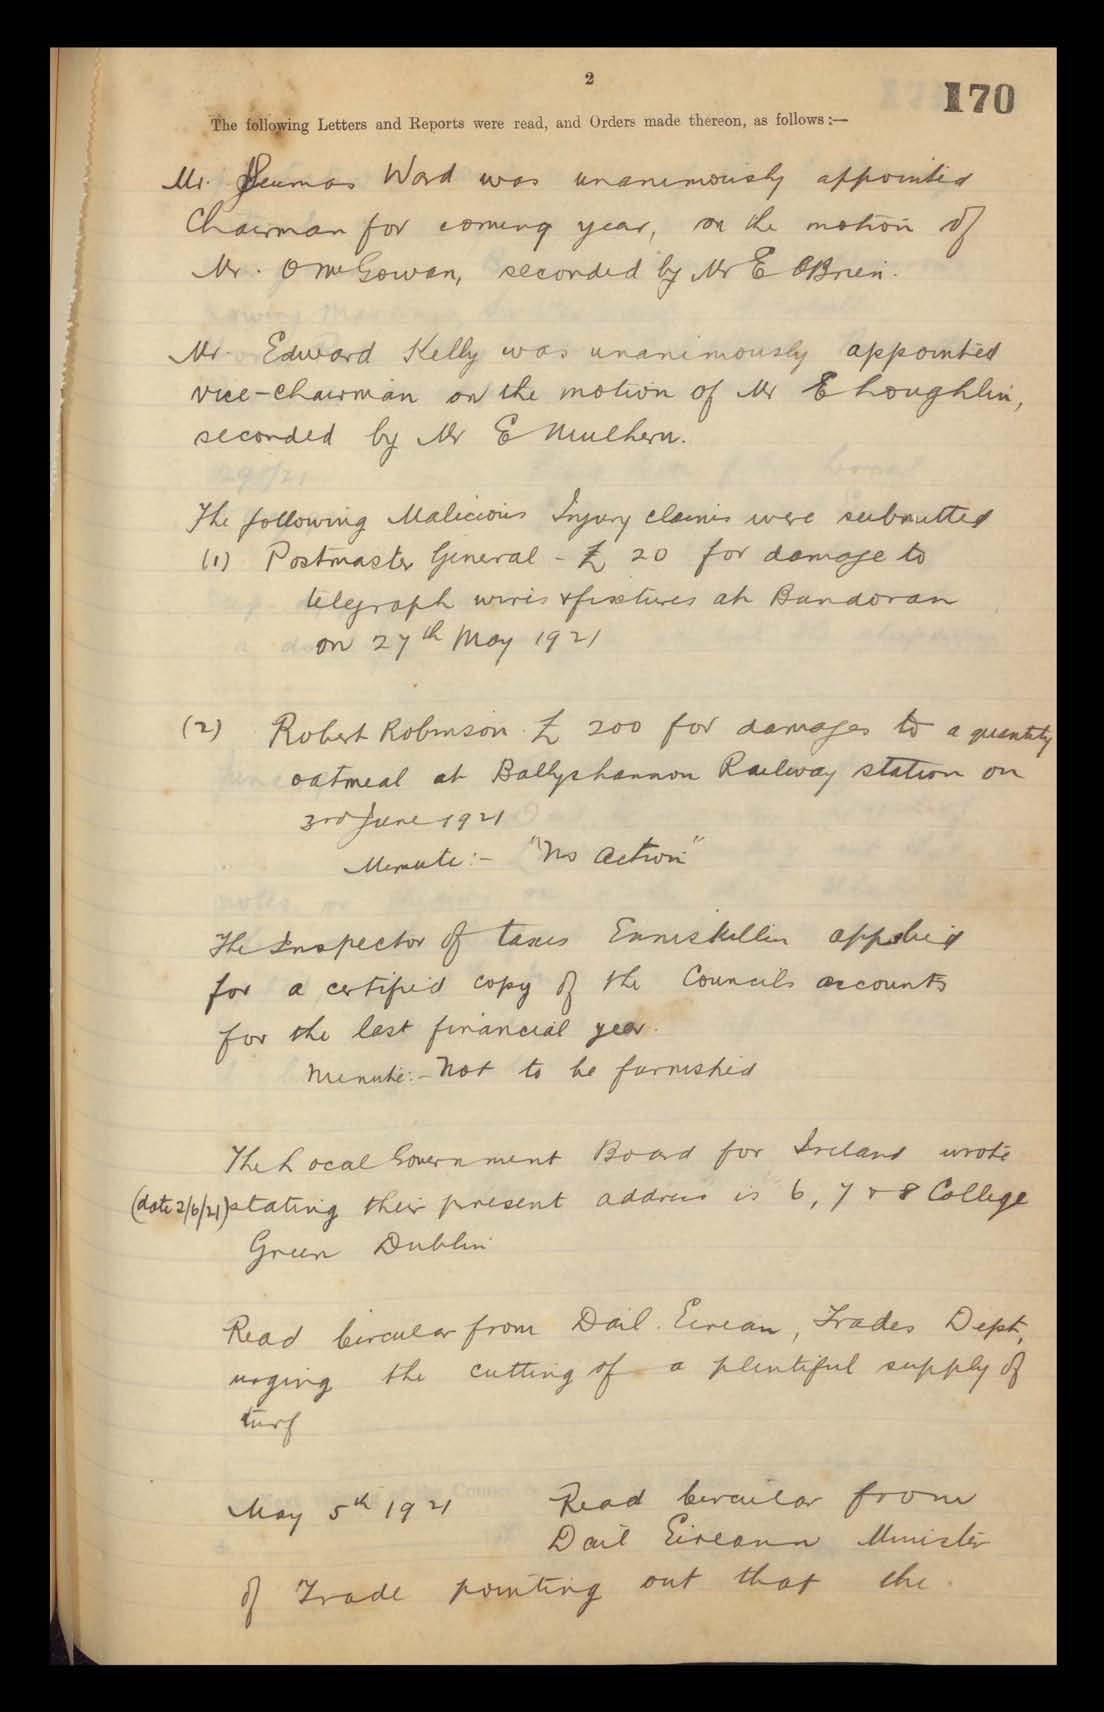 2
170
The following Letters and Reports were read, and Orders made thereon, as follows:—
Mr. Seumas Ward was unanimously appointed
Chairman for coming year, on the motion of
Mr. O McGowan, seconded by Mr E OBrien.
Mr. Edward Kelly was unanimously appointed
vice-chairman on the motion of Mr E Loughlin,
seconded by Mr E Mulhern.
The following Malicious Injury claims were submitted
(1) Postmaster General - £ 20 for damage to
telegraph wires & fixtures at Bundoran
on 27th May 1921
(2) Robert Robinson £ 200 for damages to a quantity
oatmeal at Ballyshannon Railway station on
3rd June 1921
Minute:- "No action"
The Inspector of taxes Enniskillen applied
for a certified copy of the Councils accounts
for the last financial year.
Minute:- Not to be furnished
The Local Government Board for Ireland wrote
(date 2/6/21) stating their present address is 6, 7 & 8 College
Green Dublin
Read Circular from Dail Eirean, Trades Dept,
urging the cutting of a plentiful supply of
turf
May 5th 1921 Read Circular from
Dail Eireann Minister
of Trade pointing out that the